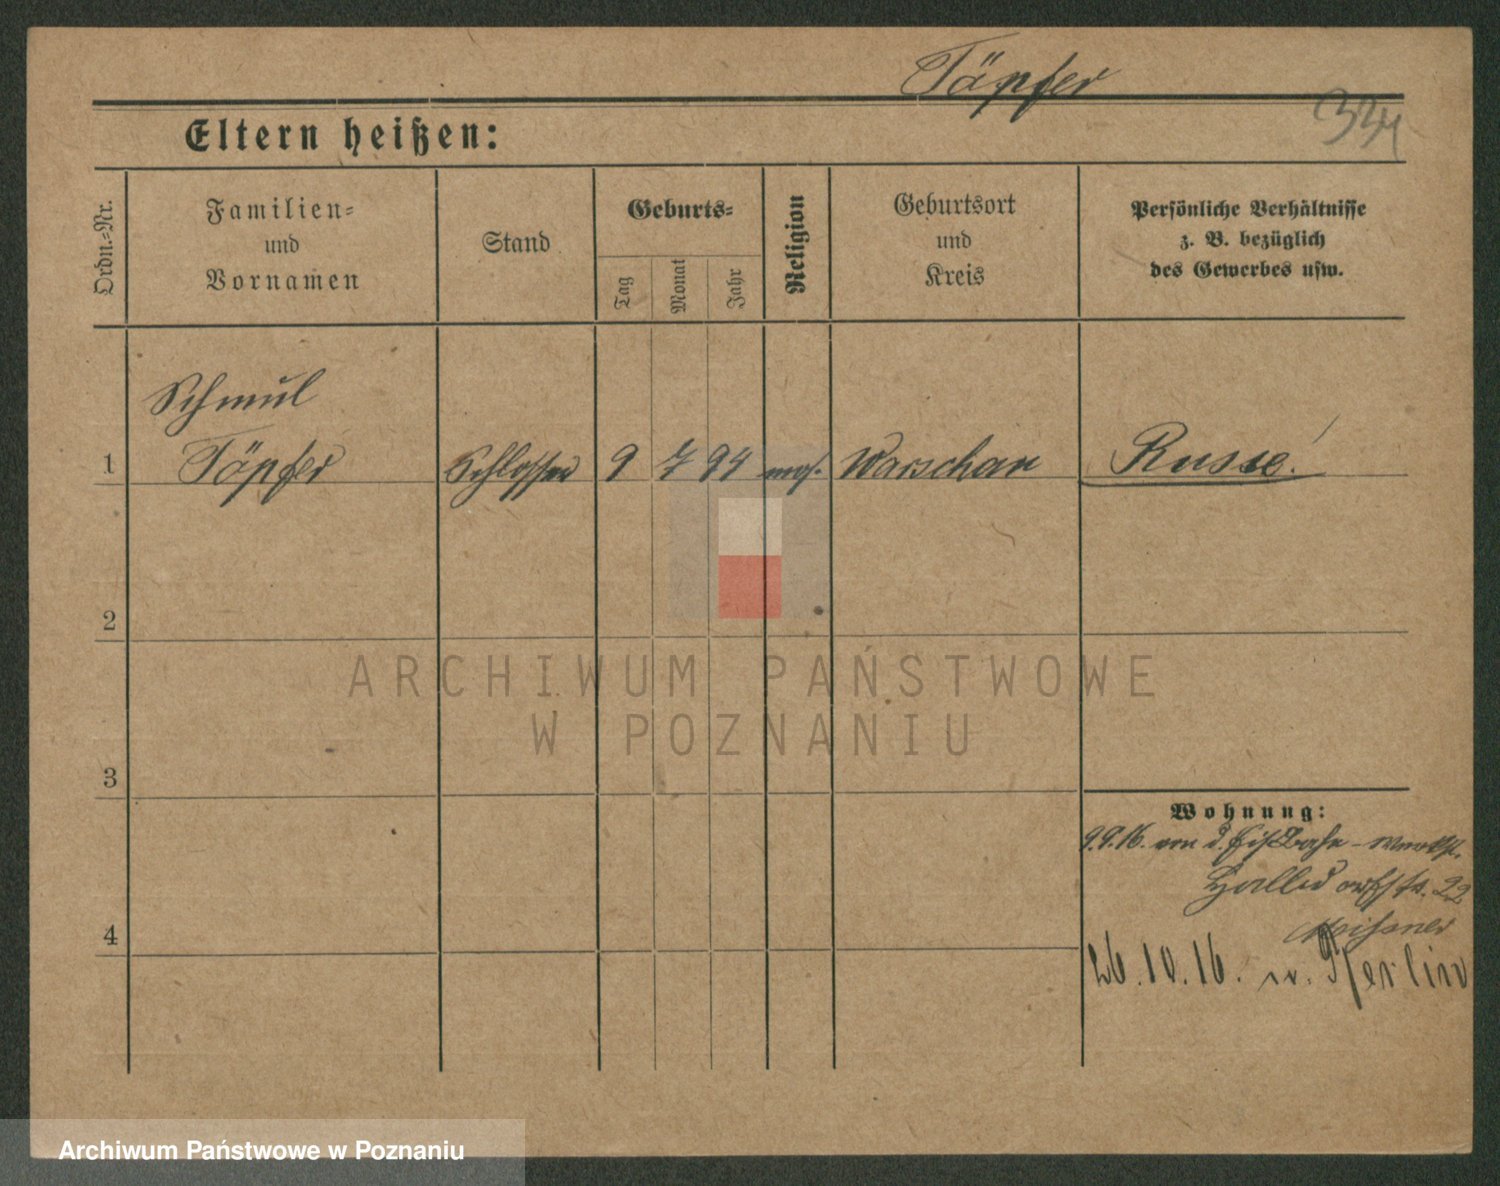 Töpfer
334
Eltern heißen:
Ordn.-Nr.
Familien-
und
Vornamen
Stand
Geburts-
Tag
Monat
Jahr
Religion
Geburtsort
und
Kreis
Persönliche Verhältnisse
z. B. bezüglich
des Gewerbes usw.
Schmul
1 Töpfer Schlosser 9 7 94 mos. Warschau Russe!
2
ARCHIWUM PAŃSTWOWE
W POZNANIU
3
Wohnung:
9.9.16. von d.
22
4
Meissner
26.10.16. n. Berlin
Archiwum Państwowe w Poznaniu